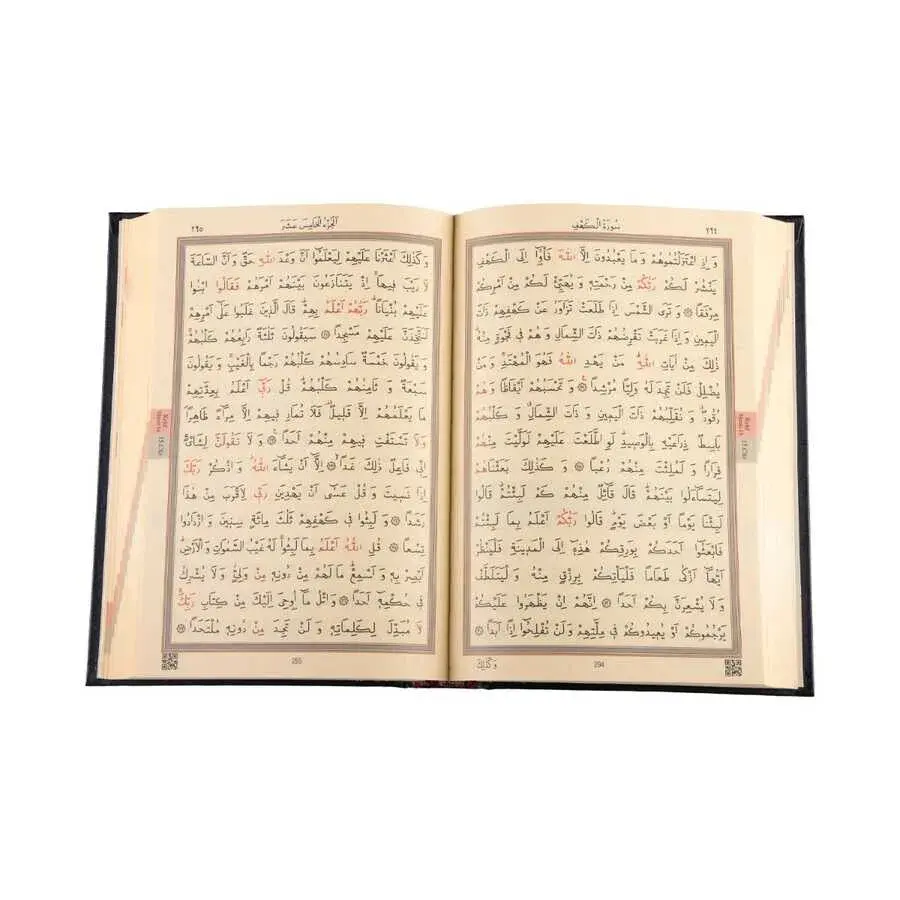 ٢٦٤
سُورَةُ الْكَهْفِ
وَاِذِ اعْتَزَلْتُمُوهُمْ وَمَا يَعْبُدُونَ اِلَّا اللّٰهَ فَأْوُٓا اِلَى الْكَهْفِ
يَنْشُرْ لَكُمْ رَبُّكُمْ مِنْ رَحْمَتِهٖ وَيُهَيِّئْ لَكُمْ مِنْ اَمْرِكُمْ
مِرْفَقًا ۞ وَتَرَى الشَّمْسَ اِذَا طَلَعَتْ تَزَاوَرُ عَنْ كَهْفِهِمْ ذَاتَ
الْيَمٖينِ وَاِذَا غَرَبَتْ تَقْرِضُهُمْ ذَاتَ الشِّمَالِ وَهُمْ فٖي فَجْوَةٍ مِنْهُ
ذٰلِكَ مِنْ اٰيَاتِ اللّٰهِ مَنْ يَهْدِ اللّٰهُ فَهُوَ الْمُهْتَدِ وَمَنْ
يُضْلِلْ فَلَنْ تَجِدَ لَهُ وَلِيًّا مُرْشِدًا ۞ وَتَحْسَبُهُمْ اَيْقَاظًا وَهُمْ
رُقُودٌ وَنُقَلِّبُهُمْ ذَاتَ الْيَمٖينِ وَذَاتَ الشِّمَالِ وَكَلْبُهُمْ
بَاسِطٌ ذِرَاعَيْهِ بِالْوَصٖيدِ لَوِ اطَّلَعْتَ عَلَيْهِمْ لَوَلَّيْتَ مِنْهُمْ
فِرَارًا وَلَمُلِئْتَ مِنْهُمْ رُعْبًا ۞ وَكَذٰلِكَ بَعَثْنَاهُمْ
لِيَتَسَٓاءَلُوا بَيْنَهُمْ قَالَ قَٓائِلٌ مِنْهُمْ كَمْ لَبِثْتُمْ قَالُوا
لَبِثْنَا يَوْمًا اَوْ بَعْضَ يَوْمٍ قَالُوا رَبُّكُمْ اَعْلَمُ بِمَا لَبِثْتُمْ
فَابْعَثُٓوا اَحَدَكُمْ بِوَرِقِكُمْ هٰذِهٖٓ اِلَى الْمَدٖينَةِ فَلْيَنْظُرْ
اَيُّهَٓا اَزْكٰى طَعَامًا فَلْيَأْتِكُمْ بِرِزْقٍ مِنْهُ وَلْيَتَلَطَّفْ
وَلَا يُشْعِرَنَّ بِكُمْ اَحَدًا ۞ اِنَّهُمْ اِنْ يَظْهَرُوا عَلَيْكُمْ
يَرْجُمُوكُمْ اَوْ يُعٖيدُوكُمْ فٖي مِلَّتِهِمْ وَلَنْ تُفْلِحُٓوا اِذًا اَبَدًا ۞
وَكَذٰلِكَ
294
15.Cüz
الْجُزْءُ الْخَامِسَ عَشَرَ
٢٦٥
وَكَذٰلِكَ اَعْثَرْنَا عَلَيْهِمْ لِيَعْلَمُٓوا اَنَّ وَعْدَ اللّٰهِ حَقٌّ وَاَنَّ السَّاعَةَ
لَا رَيْبَ فٖيهَا اِذْ يَتَنَازَعُونَ بَيْنَهُمْ اَمْرَهُمْ فَقَالُوا ابْنُوا
عَلَيْهِمْ بُنْيَانًا رَبُّهُمْ اَعْلَمُ بِهِمْ قَالَ الَّذٖينَ غَلَبُوا عَلٰٓى اَمْرِهِمْ
لَنَتَّخِذَنَّ عَلَيْهِمْ مَسْجِدًا ۞ سَيَقُولُونَ ثَلٰثَةٌ رَابِعُهُمْ كَلْبُهُمْ
وَيَقُولُونَ خَمْسَةٌ سَادِسُهُمْ كَلْبُهُمْ رَجْمًا بِالْغَيْبِ وَيَقُولُونَ
سَبْعَةٌ وَثَامِنُهُمْ كَلْبُهُمْ قُلْ رَبّٖٓي اَعْلَمُ بِعِدَّتِهِمْ
مَا يَعْلَمُهُمْ اِلَّا قَلٖيلٌ فَلَا تُمَارِ فٖيهِمْ اِلَّا مِرَٓاءً ظَاهِرًا
وَلَا تَسْتَفْتِ فٖيهِمْ مِنْهُمْ اَحَدًا ۞ وَلَا تَقُولَنَّ لِشَايْءٍ
اِنّٖي فَاعِلٌ ذٰلِكَ غَدًا ۞ اِلَّٓا اَنْ يَشَٓاءَ اللّٰهُ وَاذْكُرْ رَبَّكَ
اِذَا نَسٖيتَ وَقُلْ عَسٰٓى اَنْ يَهْدِيَنِ رَبّٖي لِاَقْرَبَ مِنْ هٰذَا
رَشَدًا ۞ وَلَبِثُوا فٖي كَهْفِهِمْ ثَلٰثَ مِائَةٍ سِنٖينَ وَازْدَادُوا
تِسْعًا ۞ قُلِ اللّٰهُ اَعْلَمُ بِمَا لَبِثُوا لَهُ غَيْبُ السَّمٰوَاتِ وَالْاَرْضِ
اَبْصِرْ بِهٖ وَاَسْمِعْ مَا لَهُمْ مِنْ دُونِهٖ مِنْ وَلِيٍّ وَلَا يُشْرِكُ
فٖي حُكْمِهٖٓ اَحَدًا ۞ وَاتْلُ مَٓا اُوحِيَ اِلَيْكَ مِنْ كِتَابِ رَبِّكَ
لَا مُبَدِّلَ لِكَلِمَاتِهٖ وَلَنْ تَجِدَ مِنْ دُونِهٖ مُلْتَحَدًا ۞
295
15.Cüz